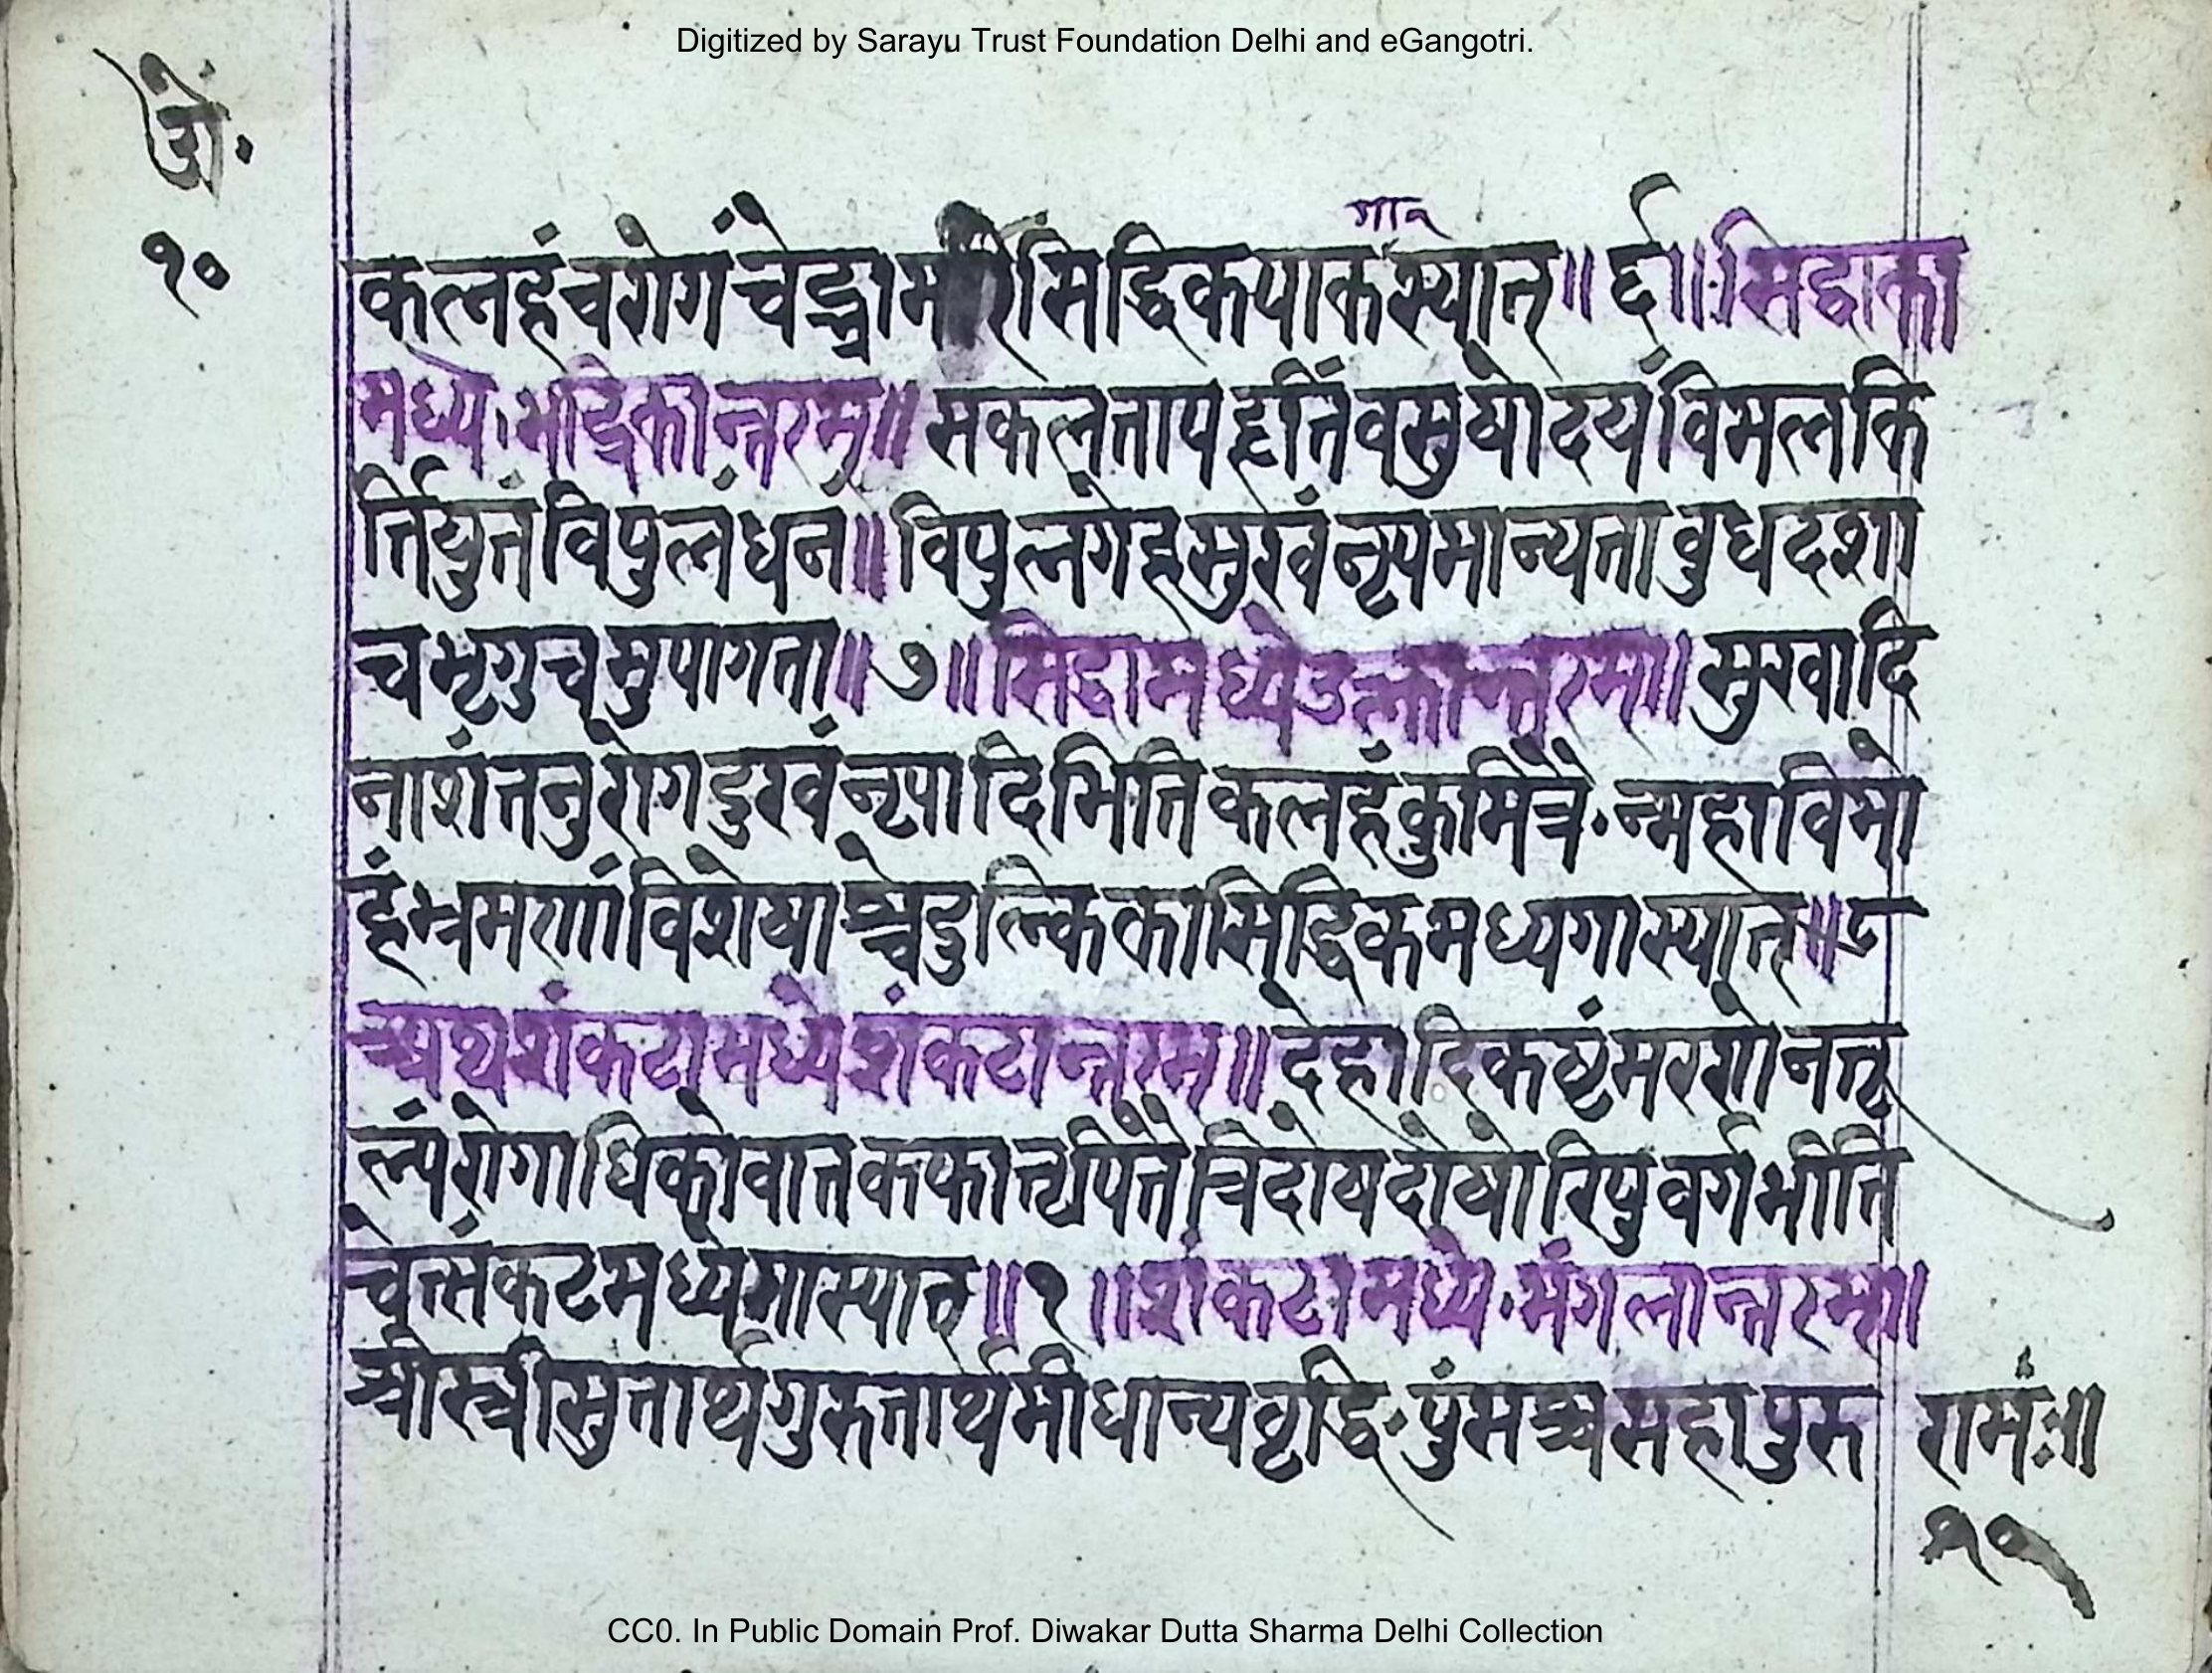 Digitized by Sarayu Trust Foundation Delhi and eGangotri.
ओं.
१०
गान
कलहंचरोगंचेद्भ्रामरीसिद्धिकयाकस्यात्॥६॥सिद्धाका
मध्ये.भद्रिकान्तरम्॥सकलतापहृतिंवसुषोदयंविमलकि
र्त्तियुतंविपुलंधनं॥विपुलगेहसुखंनृपमान्यताबुधदशा
चभृगुचमुपागता॥७॥सिद्धामध्येउल्कान्तरम॥सुखादि
नाशंतनुरोगदुखंनृपादिभितिकलहंकुमित्रै.न्महाविमो
हंभ्रमणांविशेषाश्चेदुल्किकासिद्धिकमध्यगास्यात्॥८
अथशंकटामध्येशंकटान्तरम॥देहादिकष्टंमरणोनतु
ल्यंरोगाधिकोवातकफात्तृपित्तैत्रिदोषदोषोरिपुवर्गभीति
चेत्संकटमध्येगास्यात्॥१॥शंकटामध्ये.मंगलान्तरम॥
श्रीस्त्रीसुतार्थगुरुतार्थमीधान्यवृद्धि.पुंसश्चमहापुरु
रामः॥
१०
CC0. In Public Domain Prof. Diwakar Dutta Sharma Delhi Collection